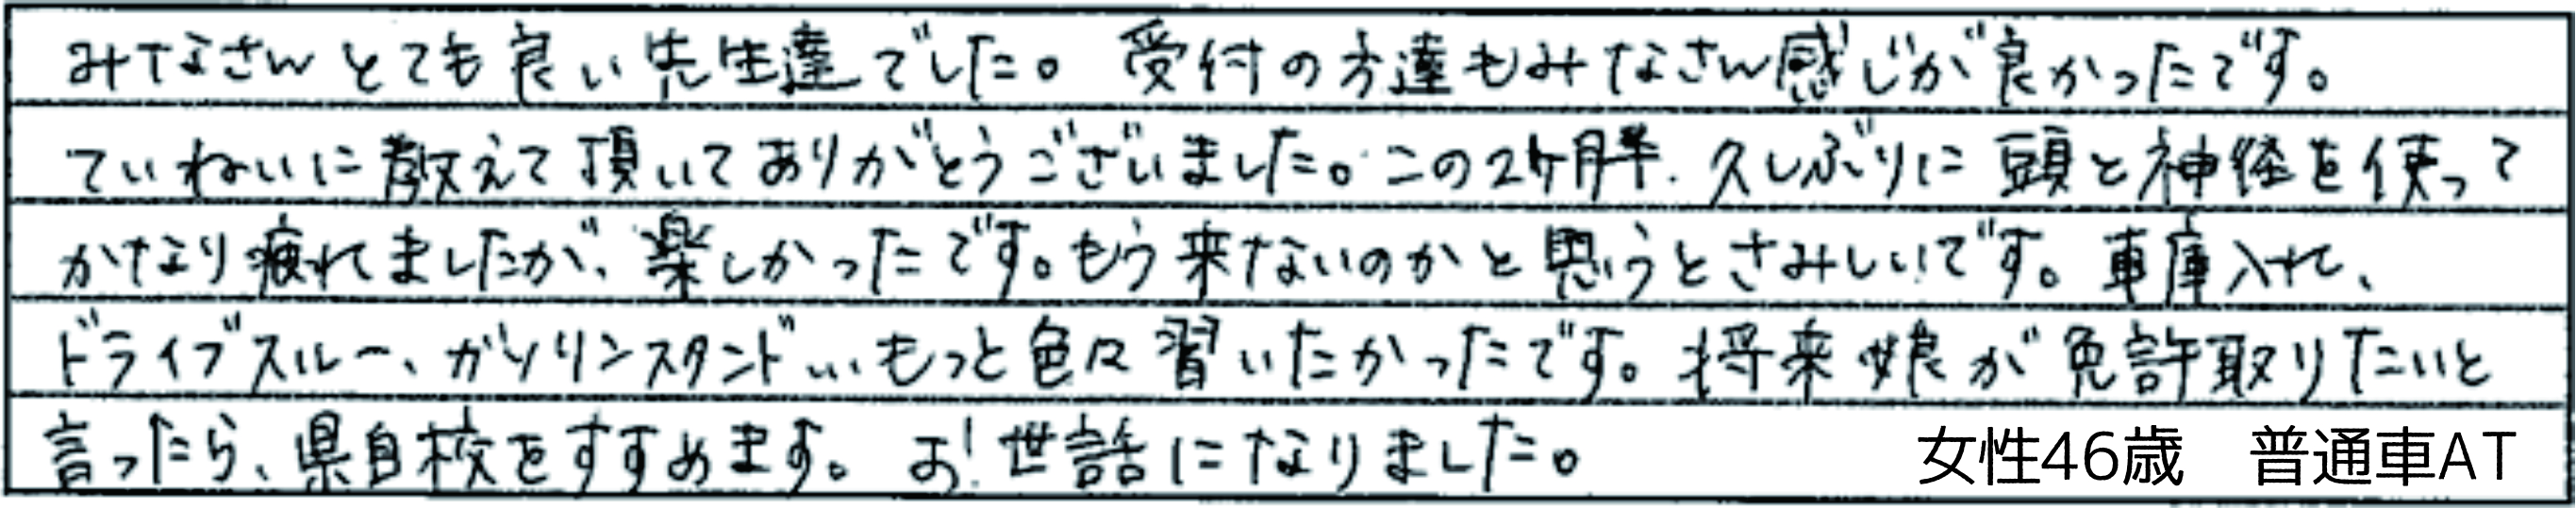 みなさんとても良い先生達でした。受付の方達もみなさん感じが良かったです。
ていねいに教えて頂いてありがとうございました。この2ヶ月半、久しぶりに頭と神経を使って
かなり疲れましたが、楽しかったです。もう来ないのかと思うとさみしいです。車庫入れ、
ドライブスルー、ガソリンスタンド…もっと色々習いたかったです。将来娘が免許取りたいと
言ったら、県自校をすすめます。お世話になりました。 女性46歳　普通車AT